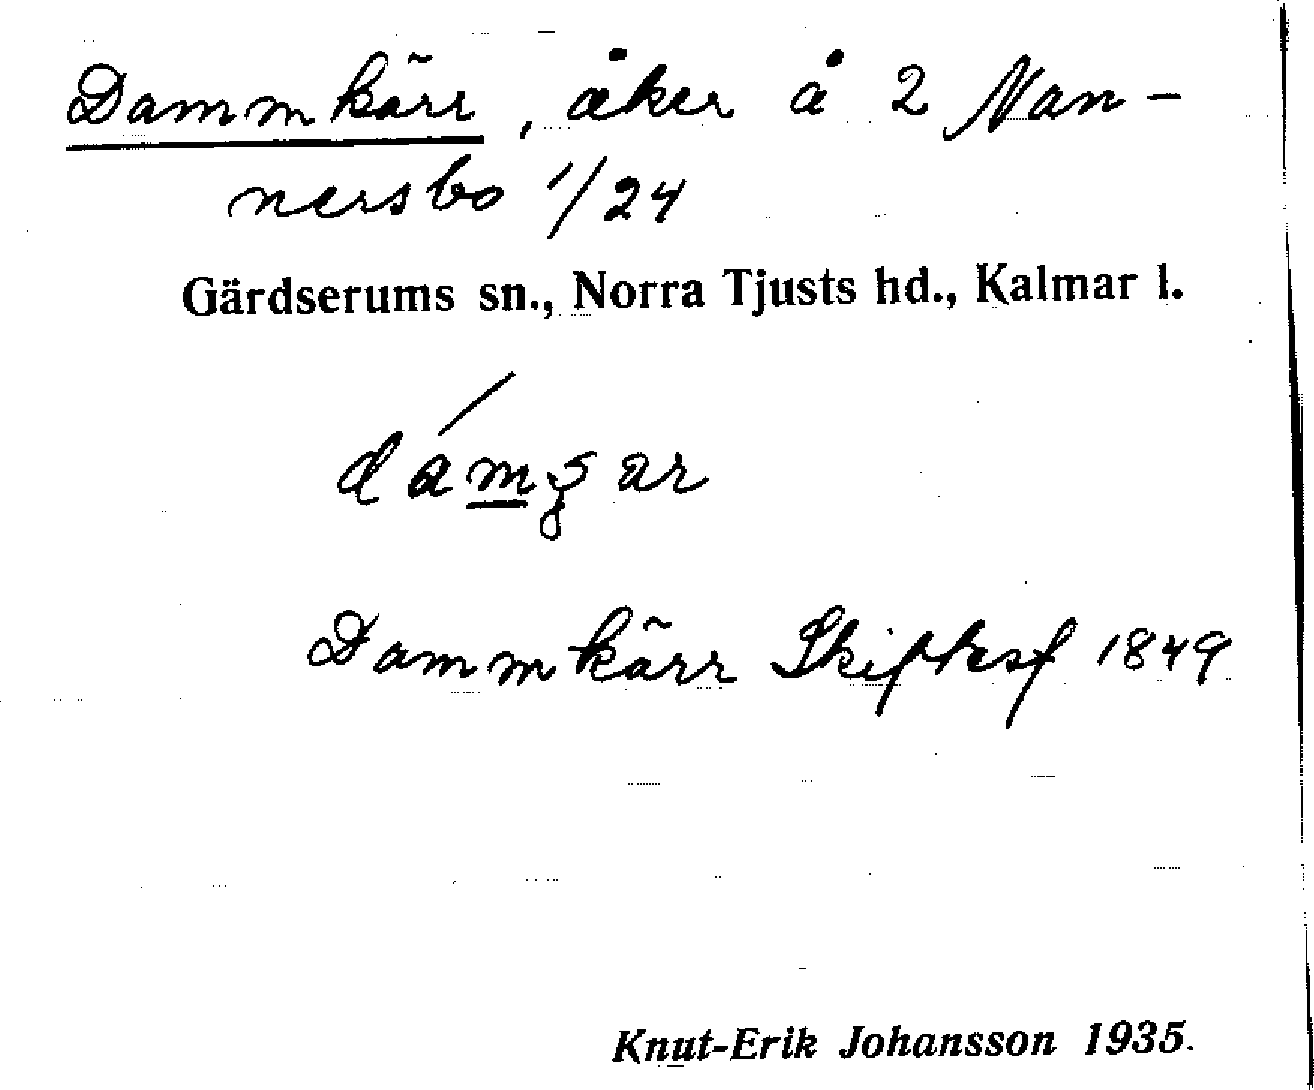 Dammkärr, åker å 2 Nan-
nersbo 1/24
Gärdserums sn., Norra Tjusts hd., Kalmar l.
Dammkärr Skiftesf 1849
Knut-Erik Johansson 1935.